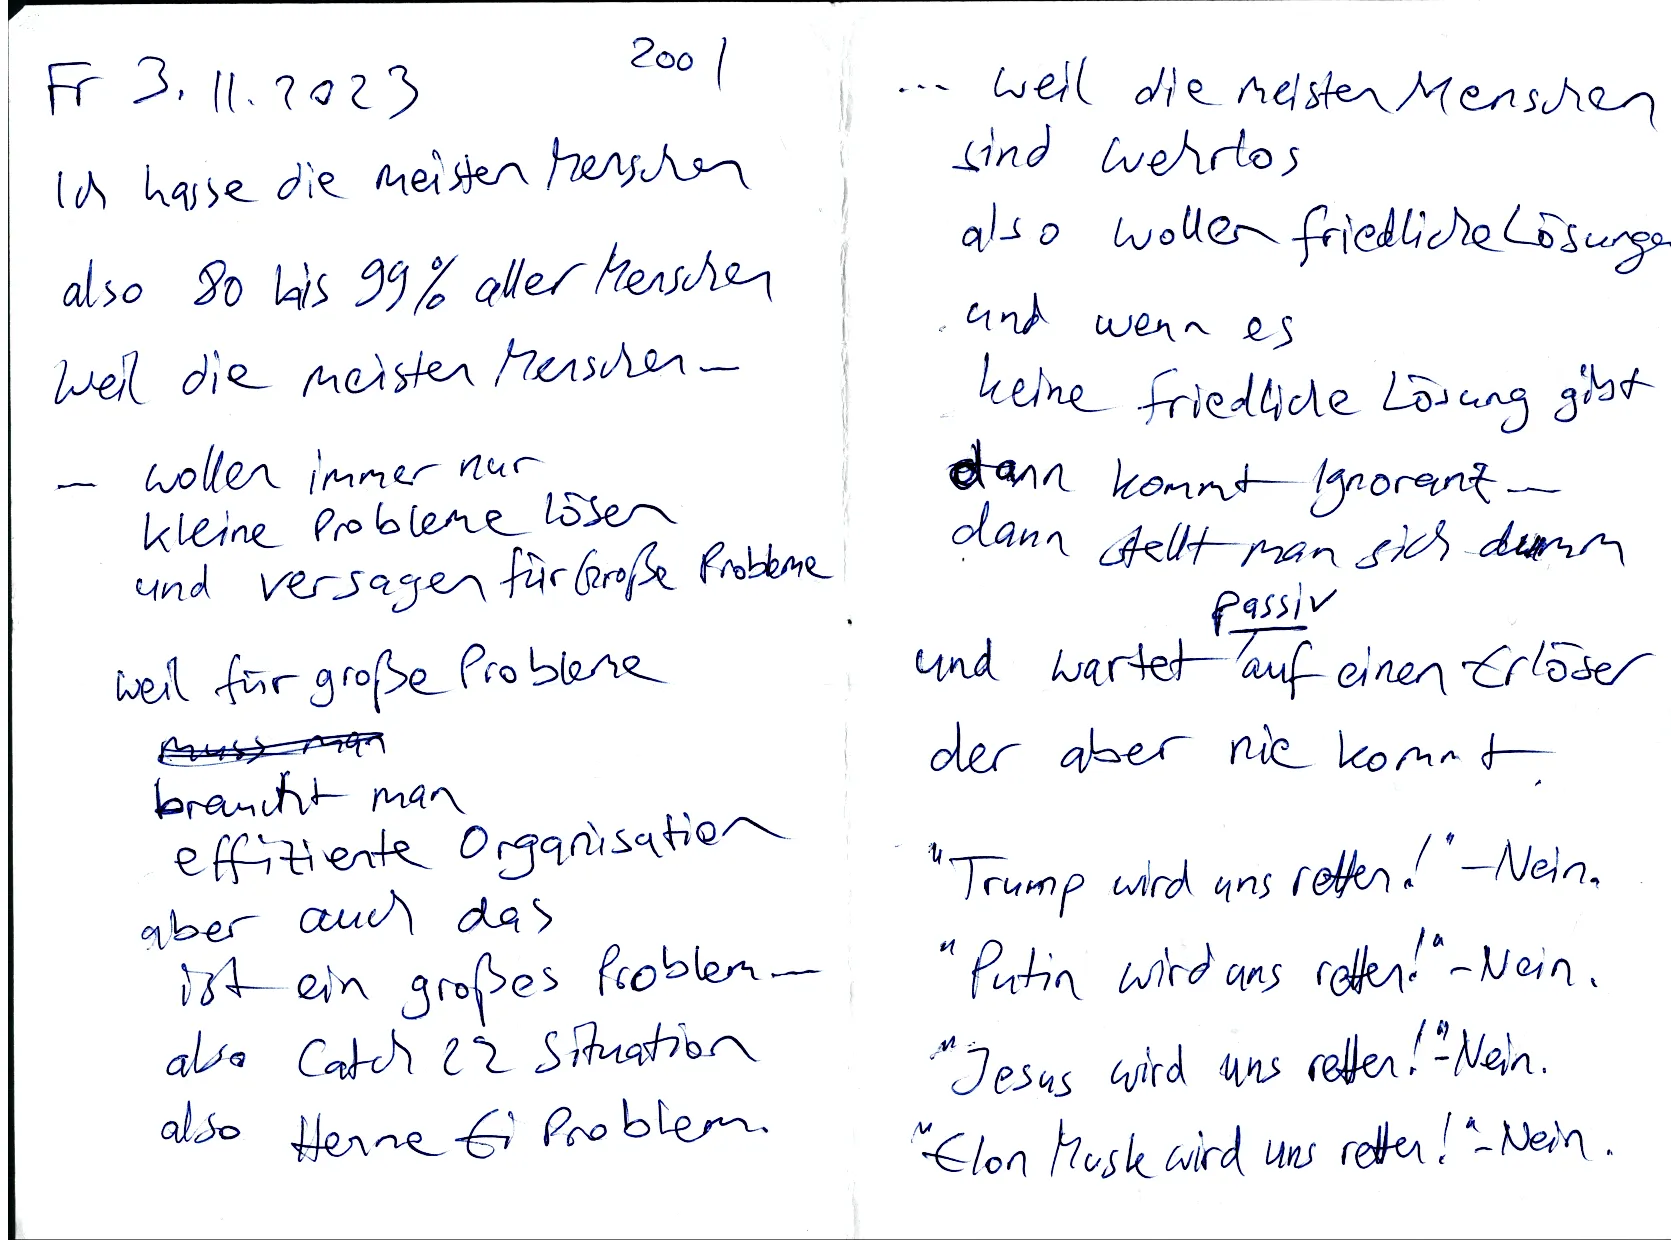 200 /
Fr 3.11.2023
Ich hasse die meisten Menschen
also 80 bis 99% aller Menschen
weil die meisten Menschen —
— wollen immer nur
kleine Probleme lösen
und versagen für Große Probleme
weil für große Probleme
muss man
braucht man
effiziente Organisation
aber auch das
ist ein großes Problem —
also Catch 22 Situation
also Henne Ei Problem.
... weil die meisten Menschen
sind wehrlos
also wollen friedliche Lösungen
und wenn es
keine friedliche Lösung gibt
dann kommt Ignoranz —
dann stellt man sich dumm
passiv
und wartet auf einen Erlöser
der aber nie kommt.
"Trump wird uns retten!" – Nein.
"Putin wird uns retten!" – Nein.
"Jesus wird uns retten!" – Nein.
"Elon Musk wird uns retten!" – Nein.